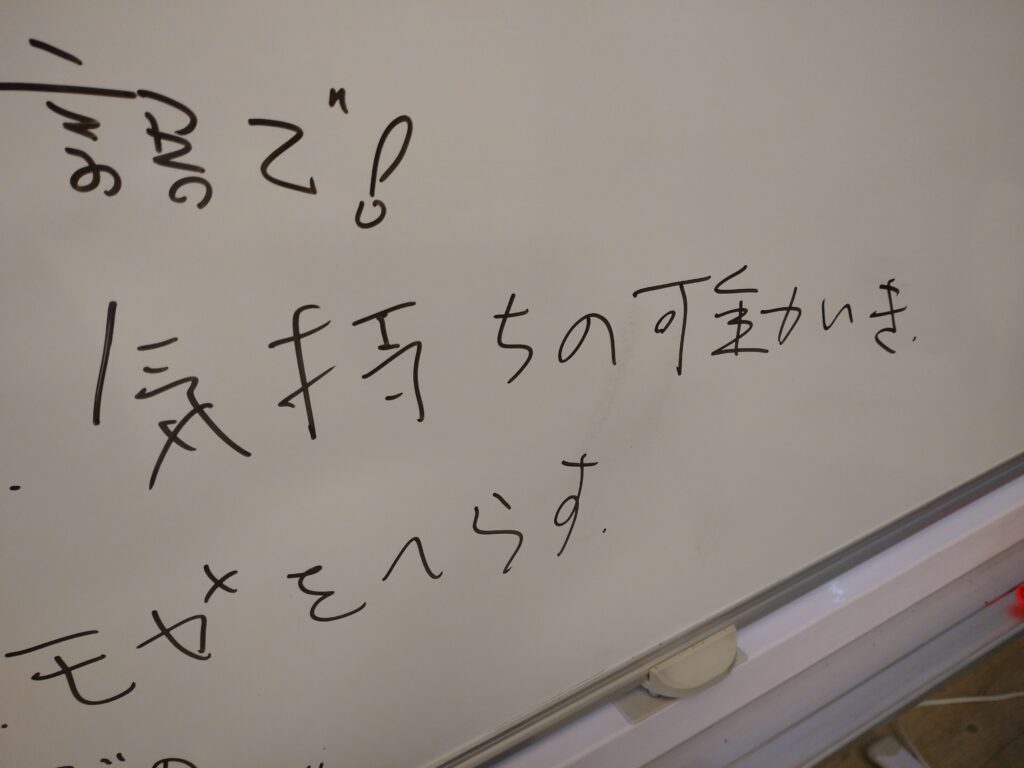 で!
気持ちの可動いき.
モヤ×をへらす.